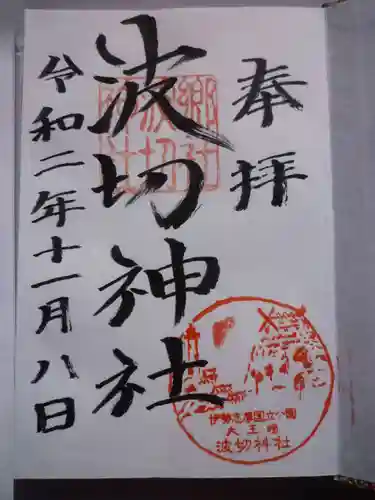 奉拝
波切神社
令和二年十一月八日
郷社
波切
神社
伊勢志摩国立公園
大王崎
波切神社